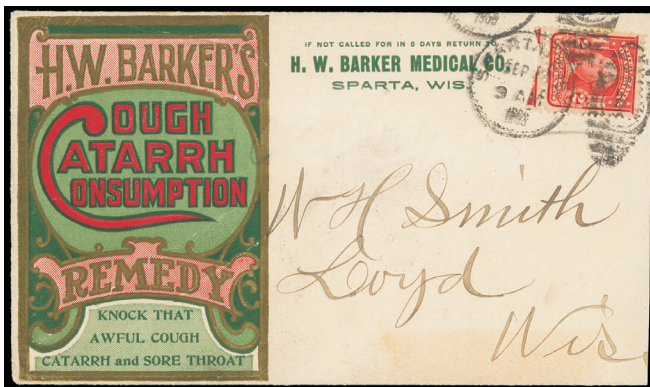 H.W. BARKER'S
COUGH
CATARRH
CONSUMPTION
REMEDY
KNOCK THAT
AWFUL COUGH
CATARRH and SORE THROAT
IF NOT CALLED FOR IN 5 DAYS RETURN TO
H. W. BARKER MEDICAL CO.
SPARTA, WIS.
SPARTA
SEP
9 AM
W H Smith
Loyd
Wis.